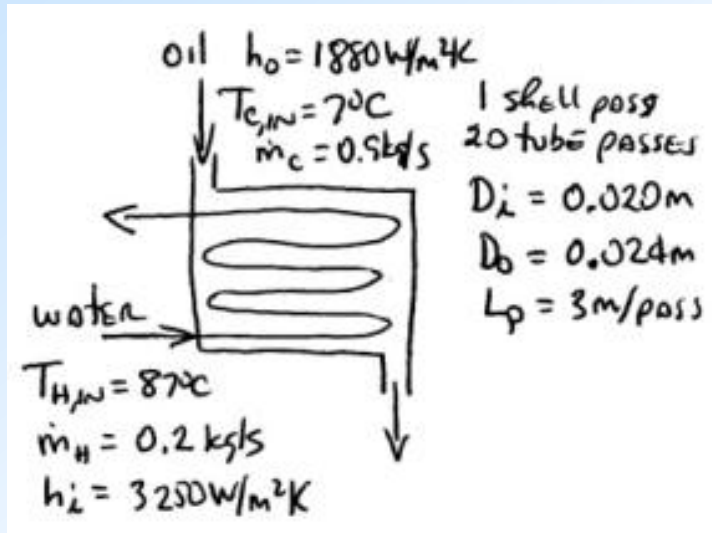 oil h₀ = 1880 W/m²K
T_C,IN = 7°C
ṁ_C = 0.9 kg/s
1 shell pass
20 tube passes
D_i = 0.020m
D_o = 0.024m
L_p = 3m/pass
water
T_H,IN = 87°C
ṁ_H = 0.2 kg/s
h_i = 3250 W/m²K